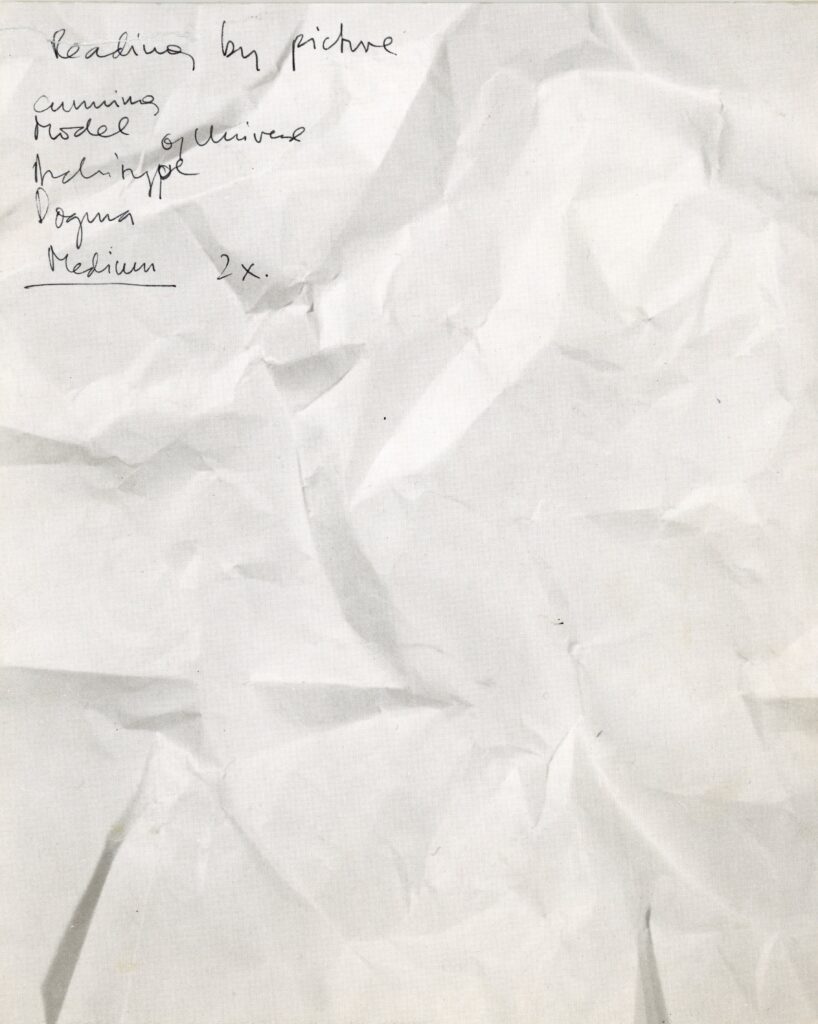 Reading by picture
cumming
Model of Univers
Architype
Dogma
Medium 2x.